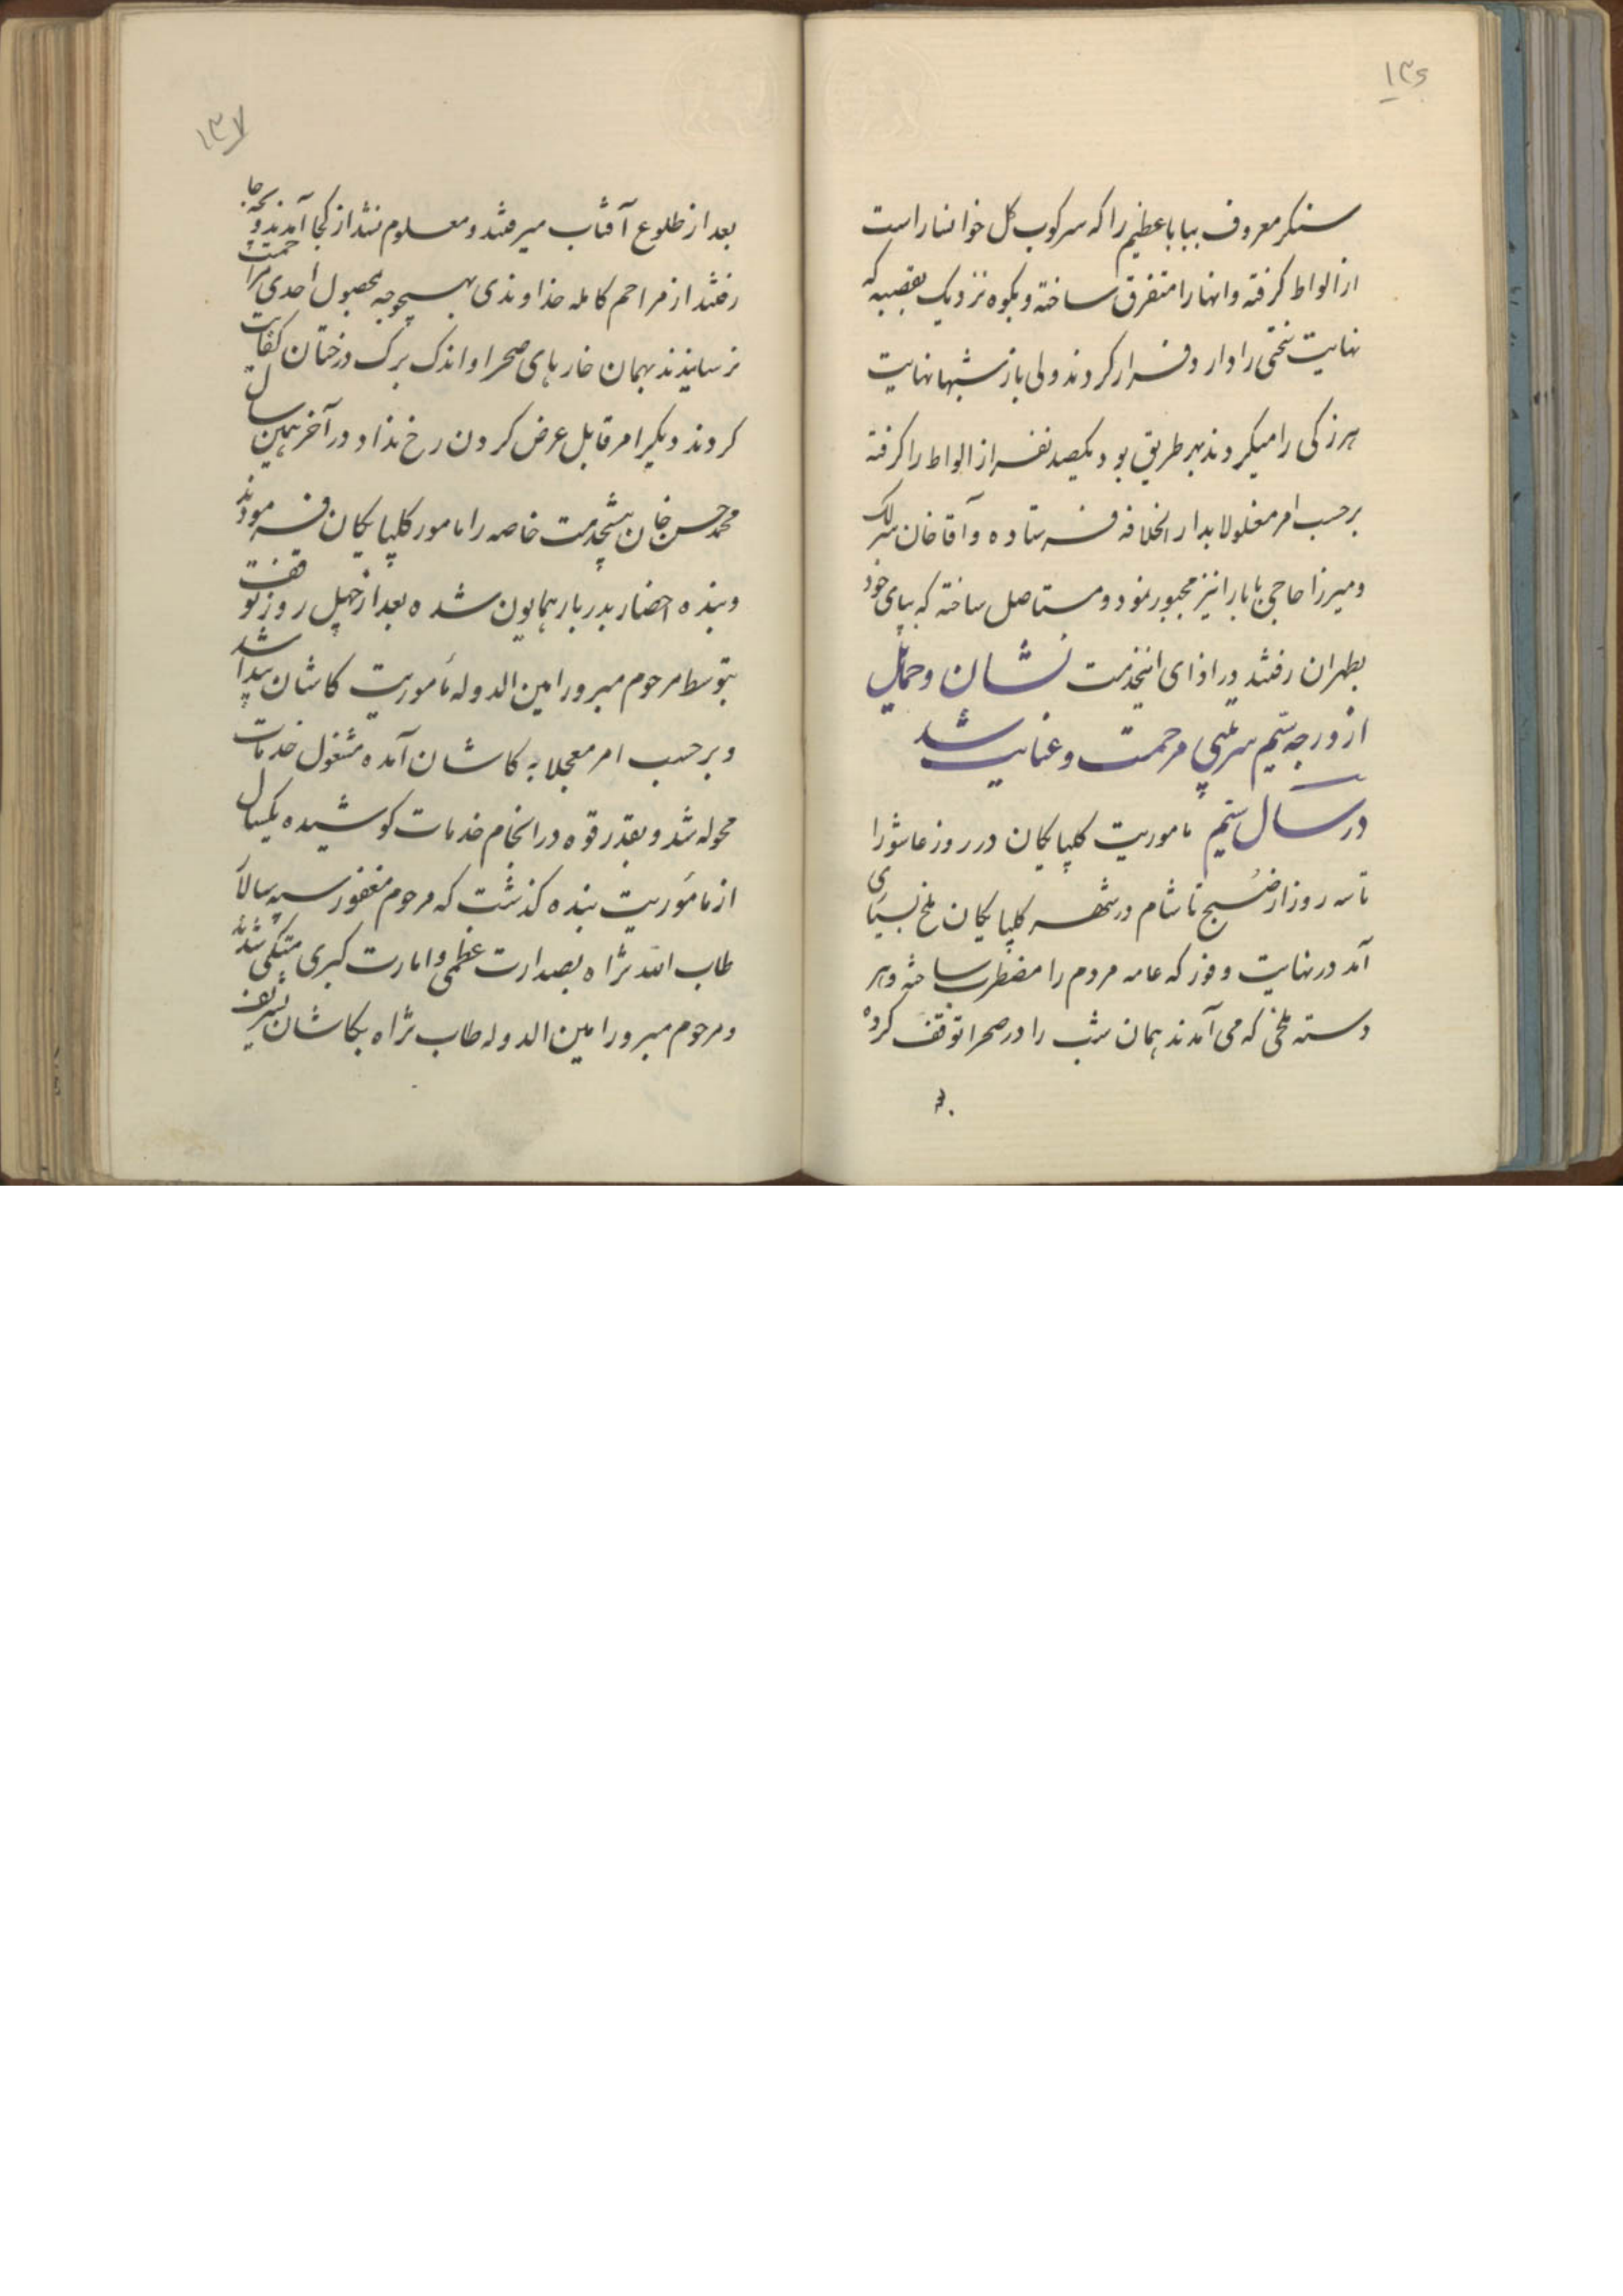 ۱۳۶
سنکر معروف ببابا عظیم را که سرکوب کل خوانسار است
از الواط کرفته و انها را متفرق ساخته و بکوه نزدیک بقصبه که
نهایت سختی را دارد فرار کردند ولی باز شبها نهایت
هرزکی را میکردند بهر طریق بود یکصد نفر از الواط را کرفته
برحسب امر مغلولا بدار الخلافه فرستاده و آقا خان سرلک
و میرزا حاجی بابا را نیز مجبور نمود و مستاصل ساخته که بپای خود
بطهران رفتند در ازای اینخدمت نشان و حمایل
از درجه سیم سرتیپی مرحمت و عنایت شد
در سال سیم ماموریت کلپایکان در روز عاشورا
تا سه روز از صبح تا شام در شهر کلپایکان ملخ بسیاری
آمد در نهایت وفور که عامه مردم را مضطرب ساخته و هر
دسته ملخی که می آمدند همان شب را در صحرا توقف کرده
۱۳۷
بعد از طلوع آفتاب میرفتند و معلوم نشد از کجا آمدند و بچه جا
رفتند از مراحم کامله خداوندی بهیچوجه بمحصول احدی مزاحمت
نرسانیدند بهمان خارهای صحرا و اندک برک درختان کفایت
کردند دیکر امر قابل عرض کردن رخ نداد در آخر همین سال
محمد حسن خان پیشخدمت خاصه را مامور کلپایکان فرمودند
و بنده احضار بدربار همایون شده بعد از چهل روز توقف
بتوسط مرحوم مبرور امین الدوله مأموریت کاشان پیدا شد
و برحسب امر معجلا به کاشان آمده مشغول خدمات
محوله شد و بقدر قوه در انجام خدمات کوشیده یکسال
از مأموریت بنده کذشت که مرحوم مغفور سپهسالار
طاب الله ثراه بصدارت عظمی و امارت کبری متکی شدند
و مرحوم مبرور امین الدوله طاب ثراه بکاشان تشریف